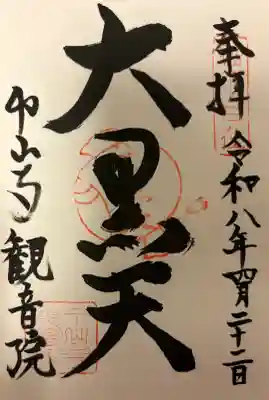 奉拝
令和八年四月二十二日
大黒天
中山寺観音院